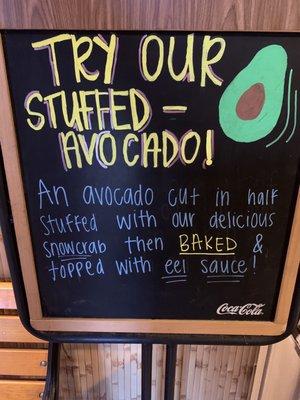 TRY OUR
STUFFED-
AVOCADO!
An avocado cut in half
stuffed with our delicious
snowcrab then BAKED &
topped with eel sauce!
Coca-Cola